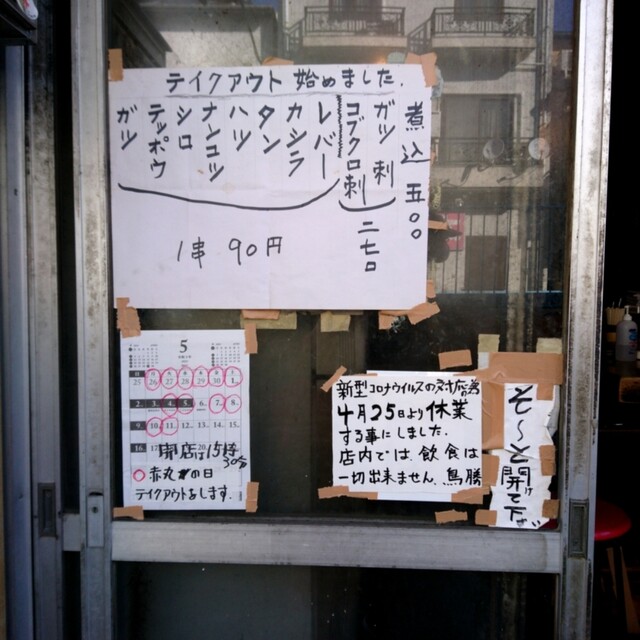 テイクアウト 始めました.
煮込 五〇〇
ガツ刺
コブクロ刺
二七〇
レバー
カシラ
タン
ハツ
ナンコツ
シロ
テッポウ
ガツ
1串 90円
5
25 26 27 28 29 30 1
2 3 4 5 6 7 8
9 10 11 12 13 14 15
16
開店は15時
30分
赤丸の日
テイクアウトをします.
新型コロナウイルスの対応為
4月25日より休業
する事にしました.
店内では、飲食は
一切出来ません. 鳥勝
そ〜と開けて下さい